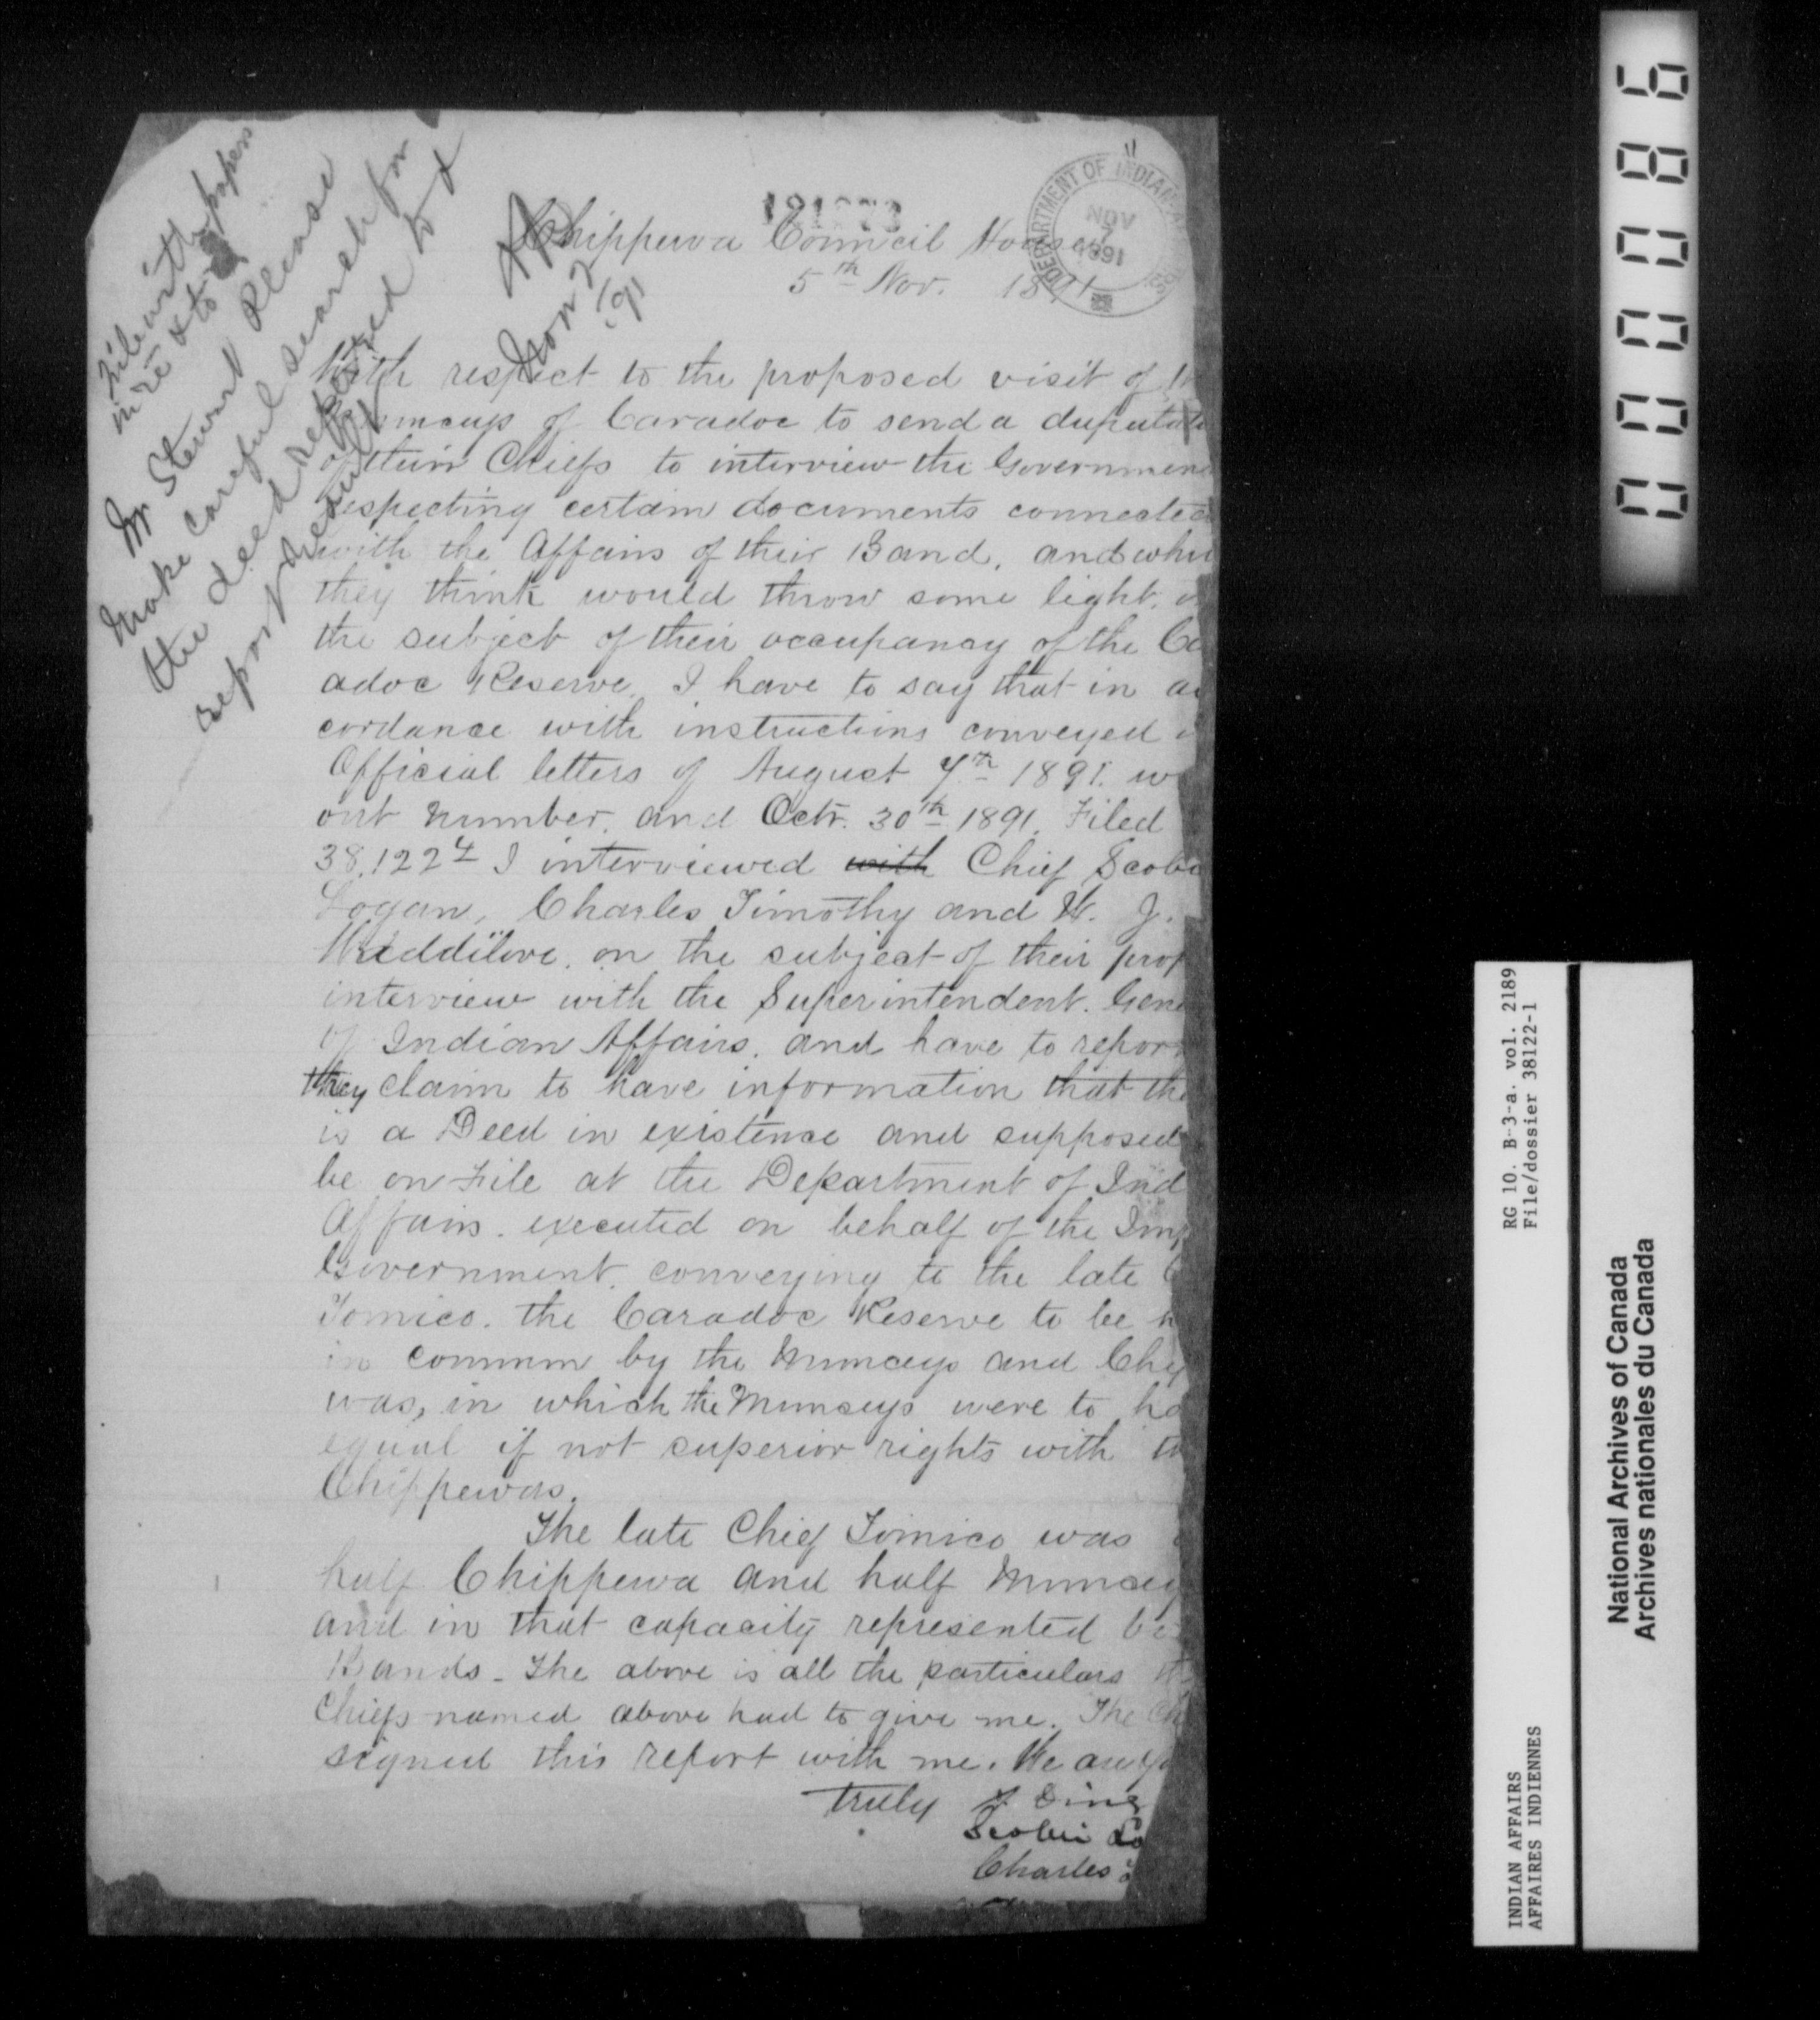 File with papers
in re & to
Mr Stewart Please
make careful search for
the deed referred to &
report result
Nov 7/91
DEPARTMENT OF INDIAN
NOV
1891
Chippewa Council House
5th Nov. 1891
With respect to the proposed visit of
Munceys of Caradoc to send a
of their Chiefs to interview the Government
respecting certain documents connected
with the Affairs of their Band, and
they think would throw some light.
the subject of their occupancy of the
adoc Reserve. I have to say that in
cordance with instructions conveyed
Official letters of August 7th 1891.
out number. and Octr. 30th 1891. Filed
38.122 4 I interviewed with Chief
Logan, Charles Timothy and W. J.
Waddilove. on the subject of their
interview with the Superintendent.
of Indian Affairs. and have to
they claim to have information that
is a Deed in existence and supposed
be on File at the Department of Ind
Affairs. executed on behalf of the
Government. conveying to the late
Tomico. the Caradoc Reserve to be
in common by the Munceys and
was, in which the Munceys were to
equal if not superior rights with
Chippewas.
The late Chief Tomico was
half Chippewa and half Muncey
and in that capacity represented
Bands – The above is all the particulars
Chiefs named above had to give me. The
signed this report with me. We are
truly
Scobie
Charles
000086
RG 10. B-3-a. vol. 2189
File/dossier 38122-1
INDIAN AFFAIRS
AFFAIRES INDIENNES
National Archives of Canada
Archives nationales du Canada